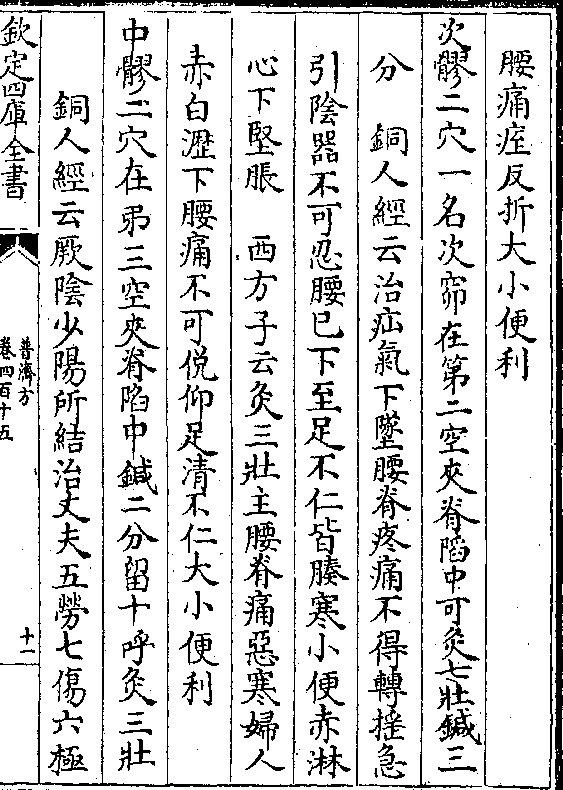 腰痛痓反折大小便利
次髎二穴一名次窌在第二空夾脊陷中可灸七壯鍼三
分　銅人經云治疝氣下墜腰脊疼痛不得轉揺急
引陰器不可忍腰已下至足不仁背腠寒小便赤淋
心下堅脹　西方子云灸三壯主腰脊痛惡寒婦人
赤白瀝下腰痛不可俛仰足清不仁大小便利
中髎二穴在弟三空夾脊陷中鍼二分留十呼灸三壯
銅人經云厥陰少陽所結治丈夫五勞七傷六極
欽定四庫全書
普濟方
卷四百十五
十一